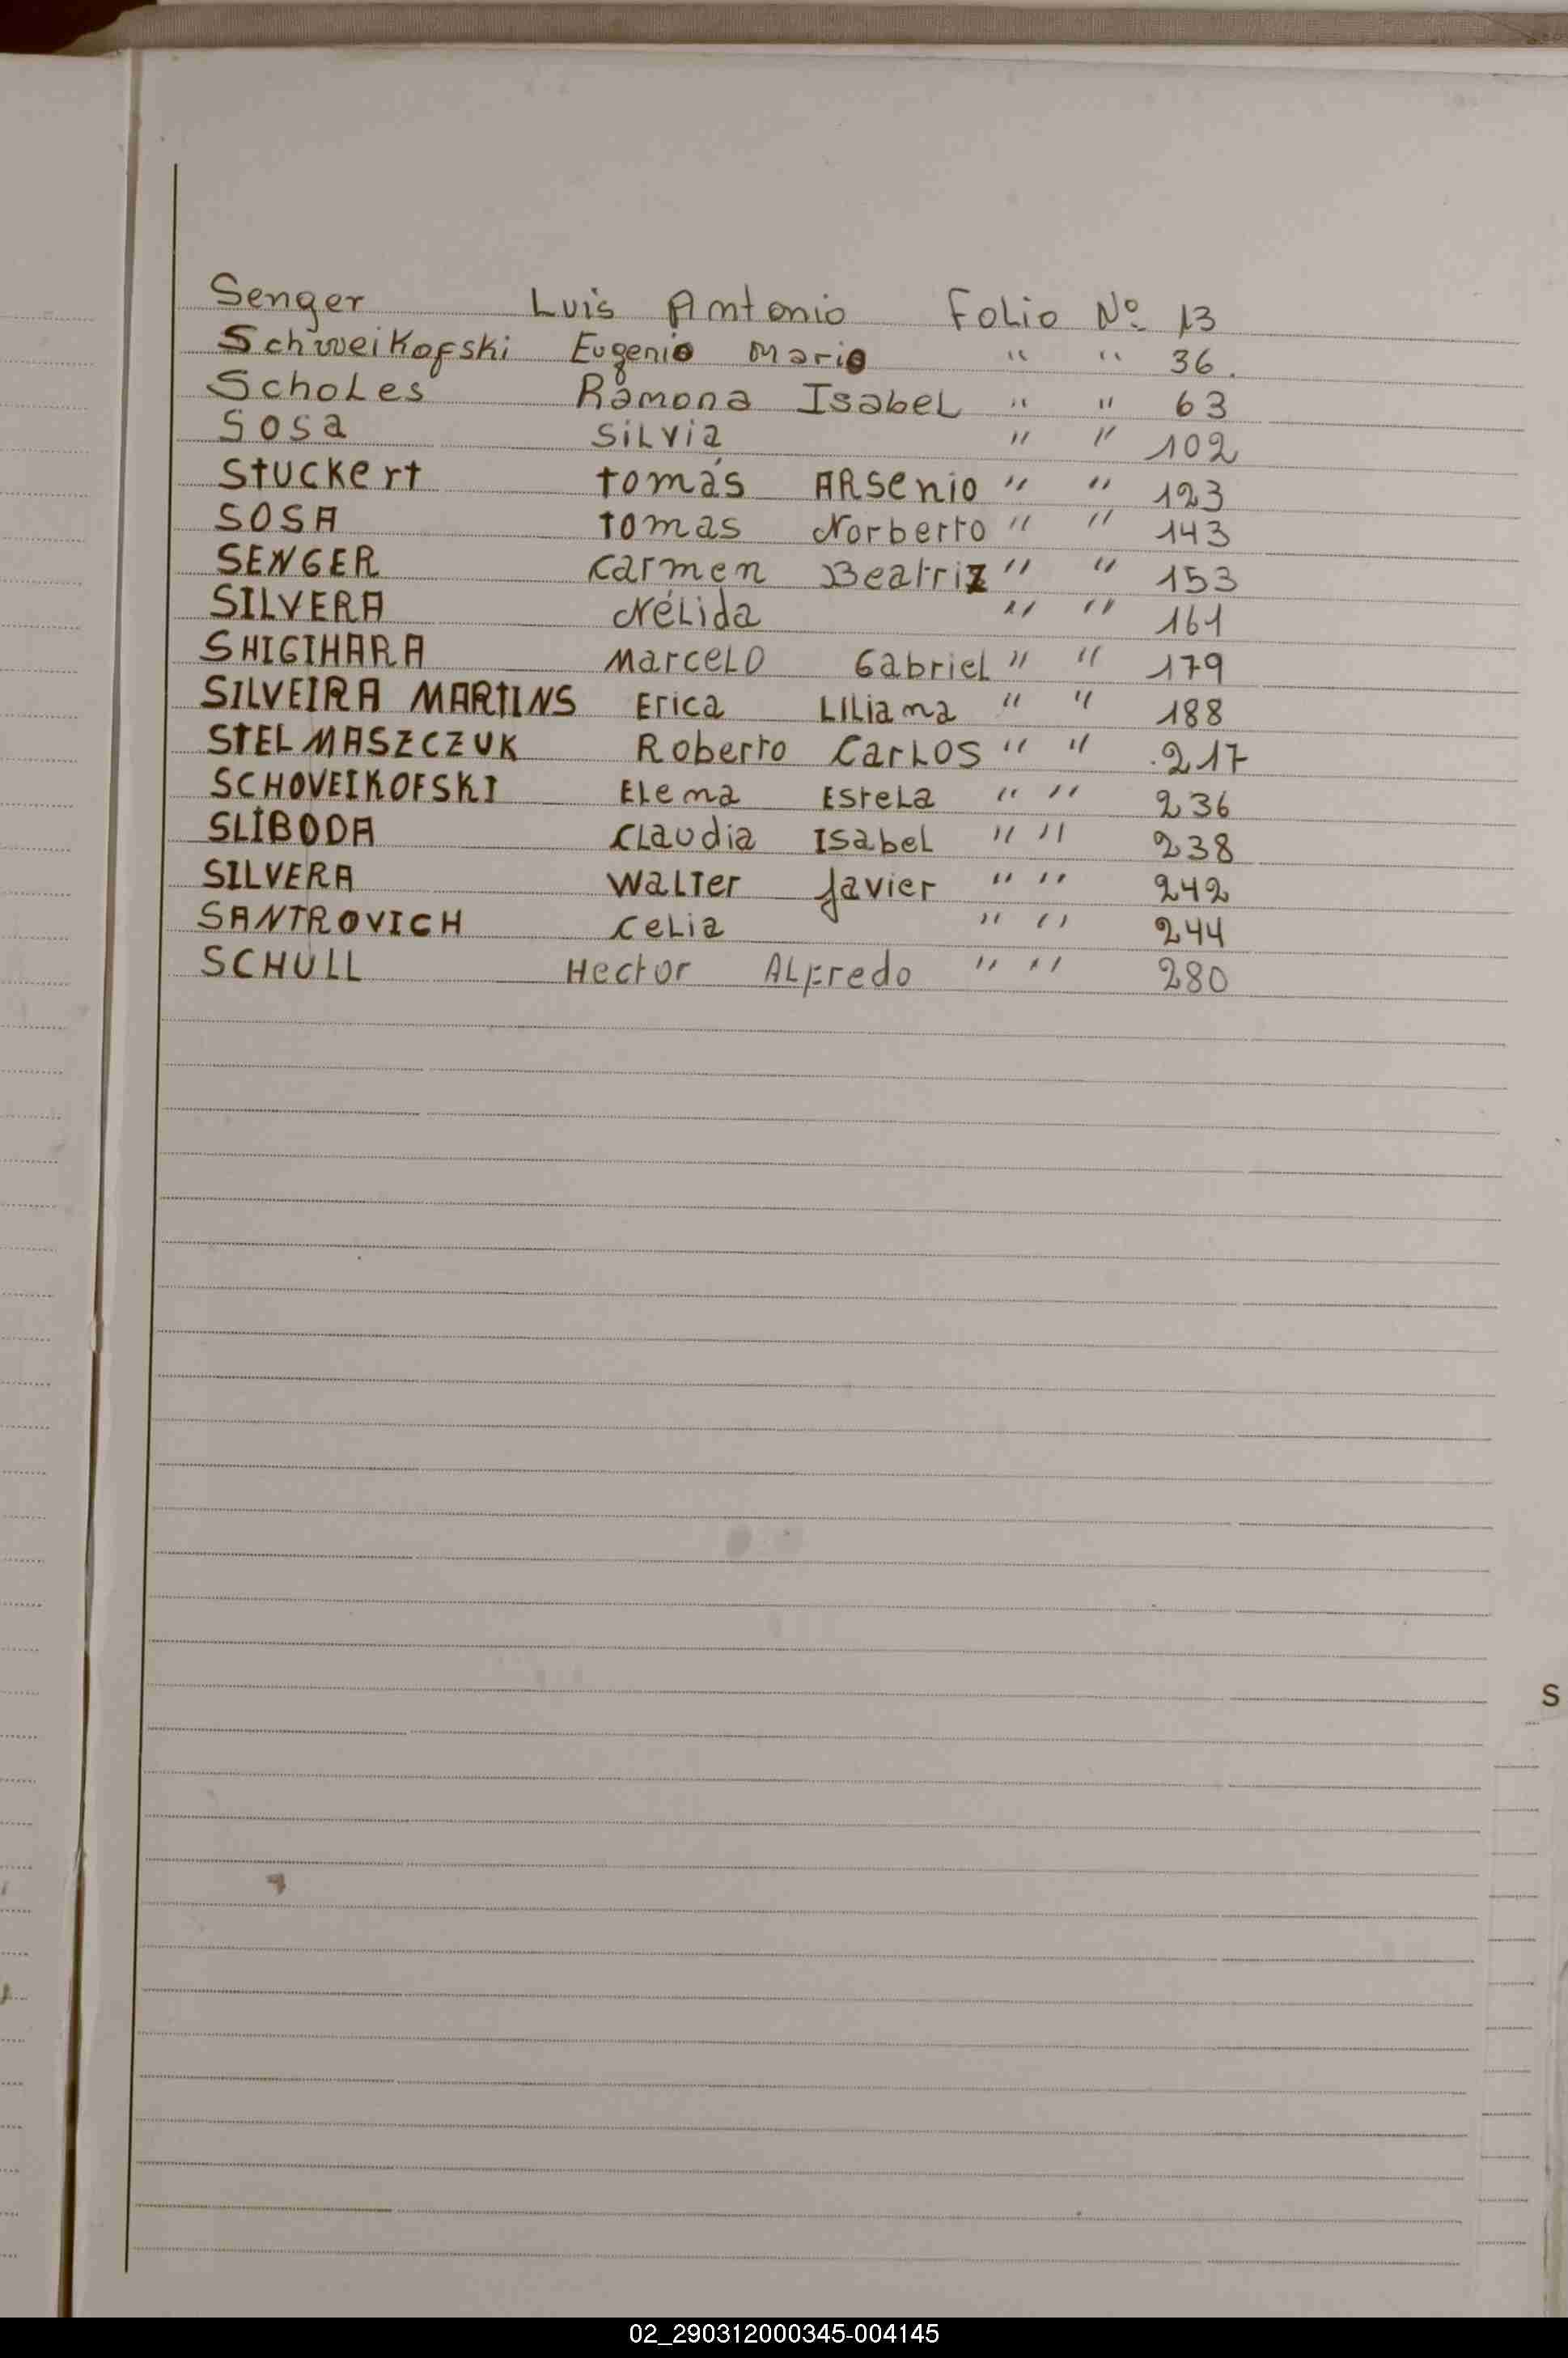 Senger Luis Antonio Folio Nº 13
Schweikofski Eugenio Mario " " 36.
Scholes Ramona Isabel " " 63
Sosa Silvia " " 102
Stuckert Tomás Arsenio " " 123
SOSA Tomas Norberto " " 143
SENGER Carmen Beatriz " " 153
SILVERA Nélida " " 161
SHIGIHARA Marcelo Gabriel " " 179
SILVEIRA MARTINS Erica Liliana " " 188
STELMASZCZUK Roberto Carlos " " 217
SCHOVEIKOFSKI Elena Estela " " 236
SLIBODA Claudia Isabel " " 238
SILVERA Walter Javier " " 242
SANTROVICH Celia " " 244
SCHULL Hector Alfredo " " 280
S
02_290312000345-004145